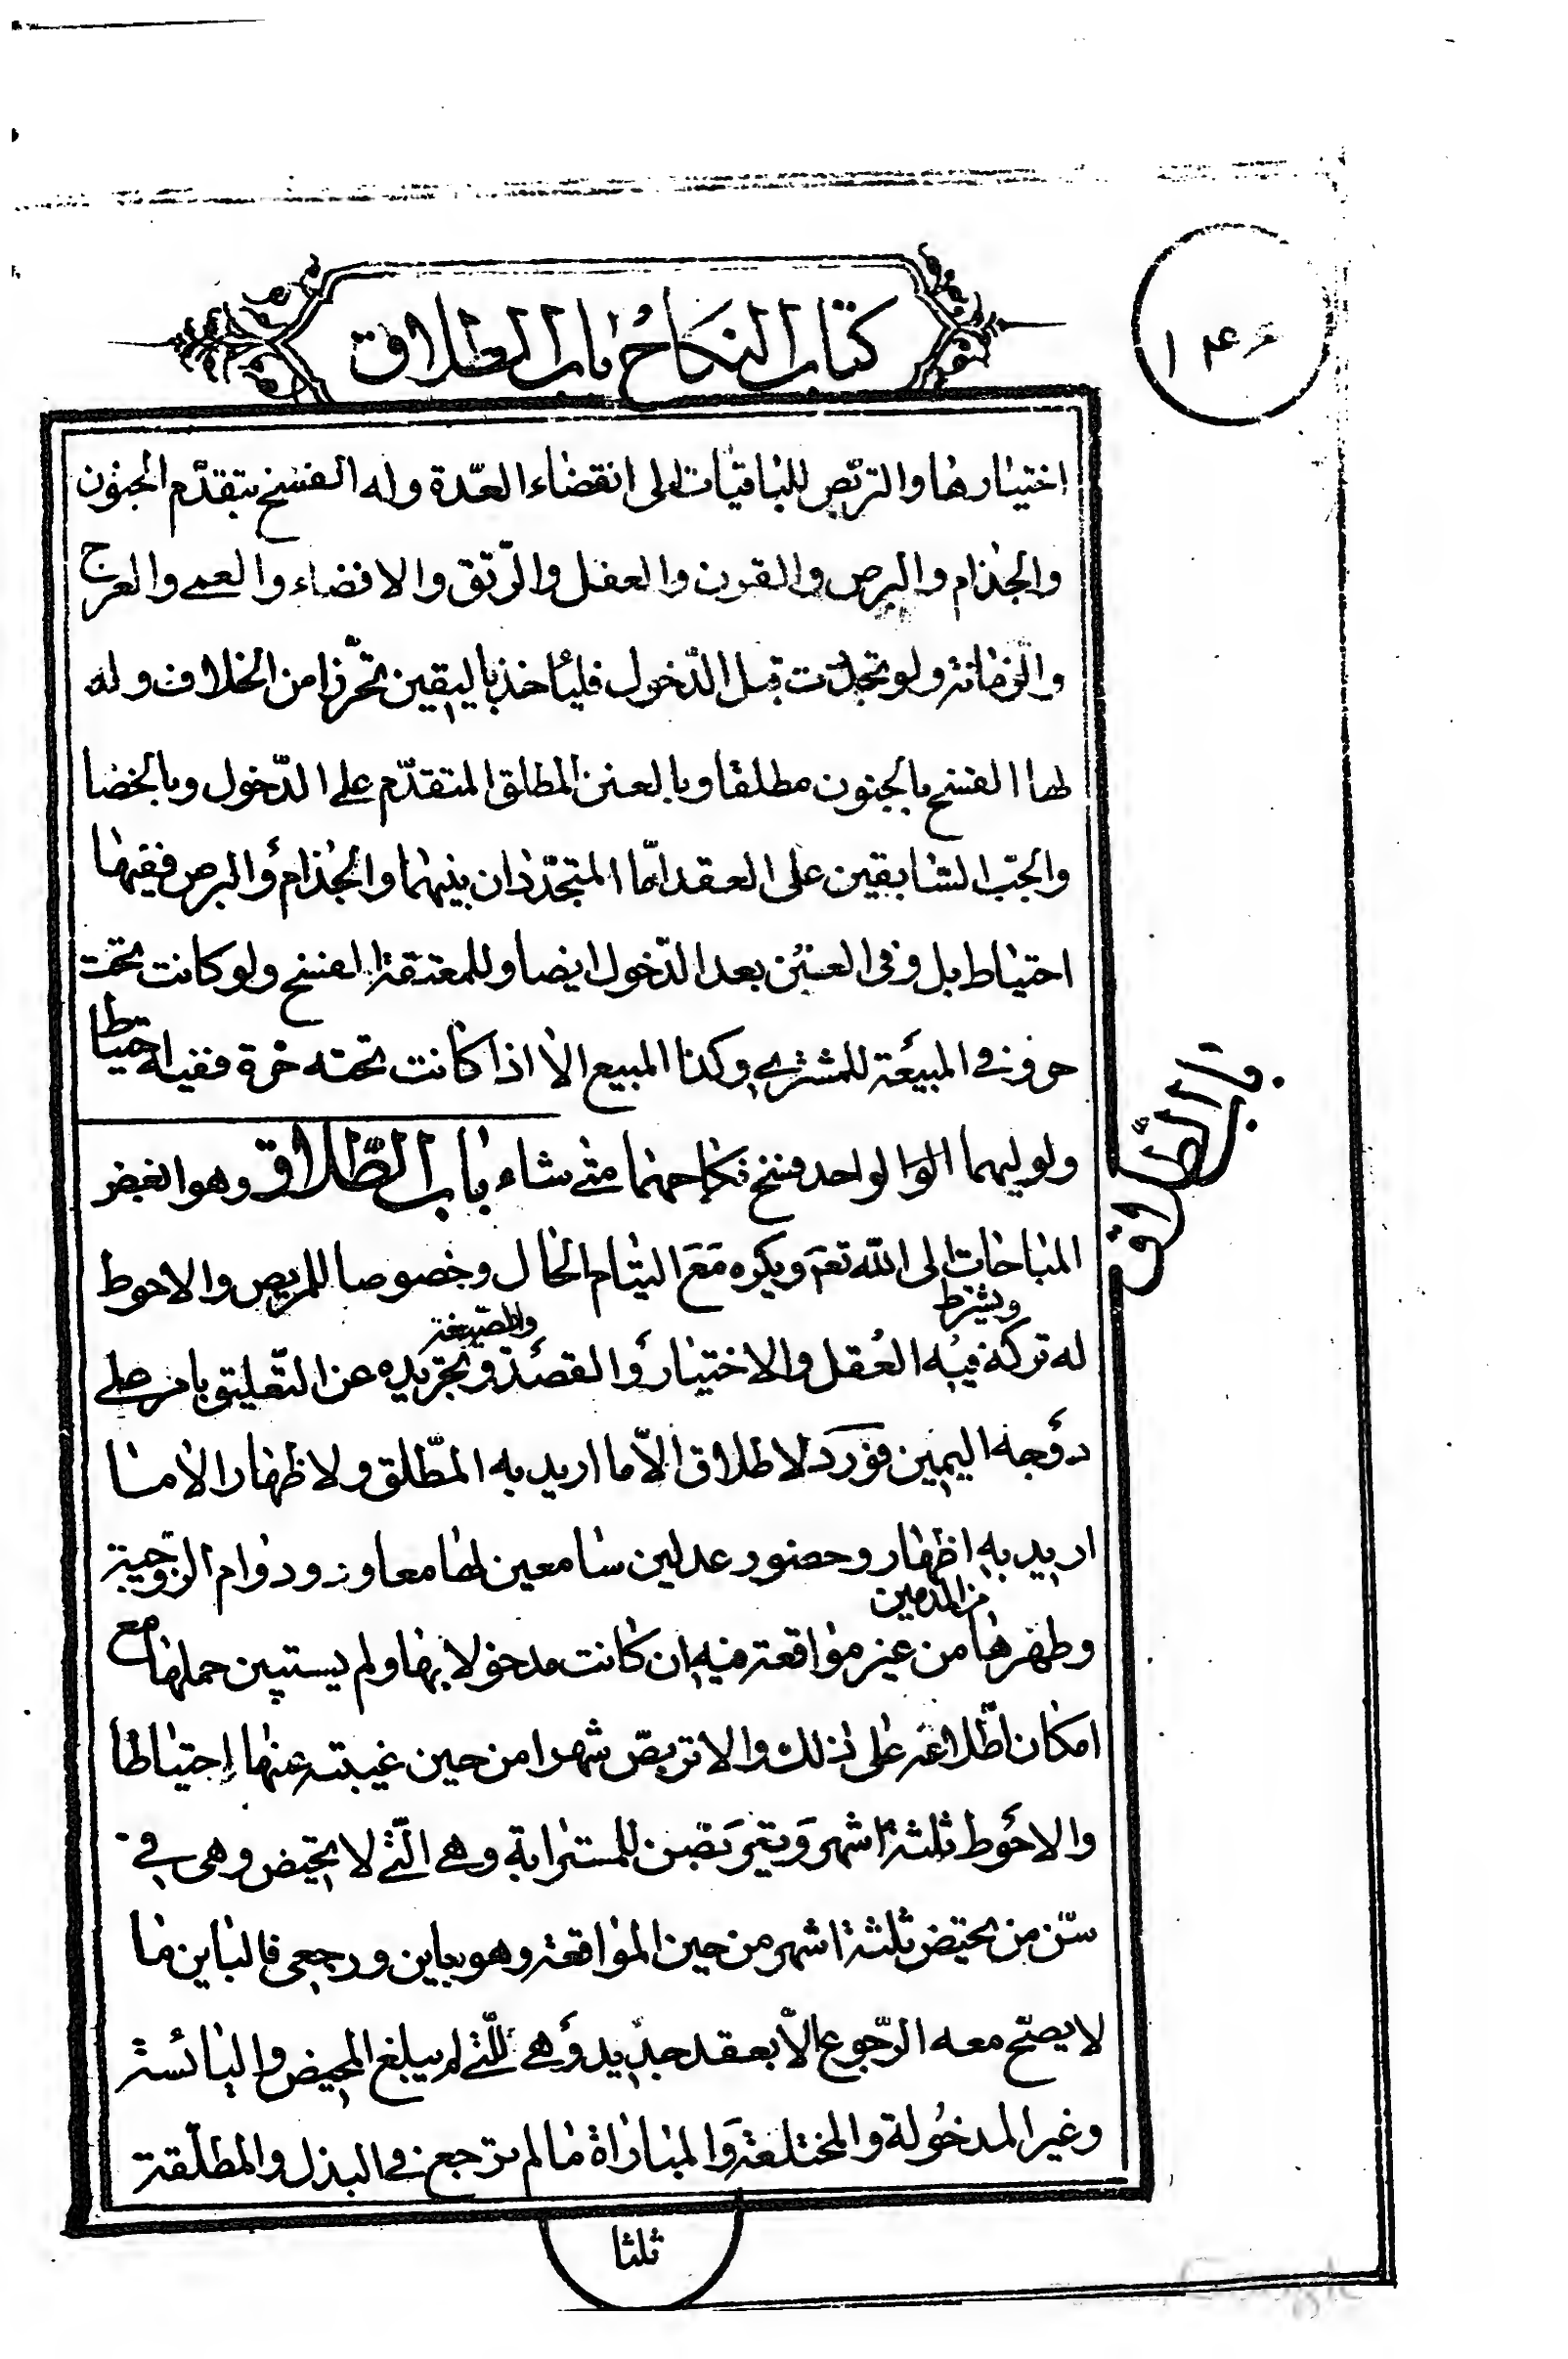 كتاب النكاح باب الطلاق
۱۴۶
اختيارها والتربّص للباقيات الى انقضاء العدّة وله الفسخ بتقدّم الجنون
والجذام والبرص والقرن والعفل والرّتق والافضاء والعمى والعرج
والزّمانة ولو تجدّدت قبل الدّخول فليأخذ باليقين تحرّزا من الخلاف وله
لها الفسخ بالجنون مطلقا وبالعنن المطلق المتقدّم على الدّخول وبالخصا
والجبّ السّابقين على العقد امّا المتجدّدان بينهما والجذام والبرص ففيها
احتياط بل وفى العنن بعد الدّخول ايضا وللمعتقة الفسخ ولو كانت تحت
حر وفى المبيعة للمشترى وكذا المبيع الا اذا كانت تحته حرة ففيه احتياط
ولوليهما الواحد فسخ نكاحهما متى شاء باب الطّلاق وهو ابغض
المباحات الى الله تعم ويكره مع التيام الحال وخصوصا للمريض والاحوط
له تركه ويشترط فيه العقل والاختيار والقصد والصيغة وتجريده عن التّعليق بامر على
وجه اليمين فورد لا طلاق الاّ ما اريد به الطّلاق ولا ظهار الا ما
اريد به اظهار وحضور عدلين سامعين لها معا ودوام الزوجية
وطهرها من الدمين من غير مواقعة فيه ان كانت مدخولا بها ولم يستبين حملها مع
امكان اطّلاعه على ذلك والا تربصّ شهرا من حين غيبته عنها احتياطا
والاحوط ثلثة اشهر ويتربّصن للمسترابة وهى الّتى لا تحيض وهى فى
سّن من تحيض ثلثة اشهر من حين المواقعة وهو باين ورجعى فالباين ما
لا يصحّ معه الرّجوع الاّ بعقد جديد وهى للّتى لم يبلغ المحيض واليائسة
وغير المدخولة والمختلعة والمباراة ما لم ترجع فى البذل والمطلّقة
ثلثا
باب الطلاق